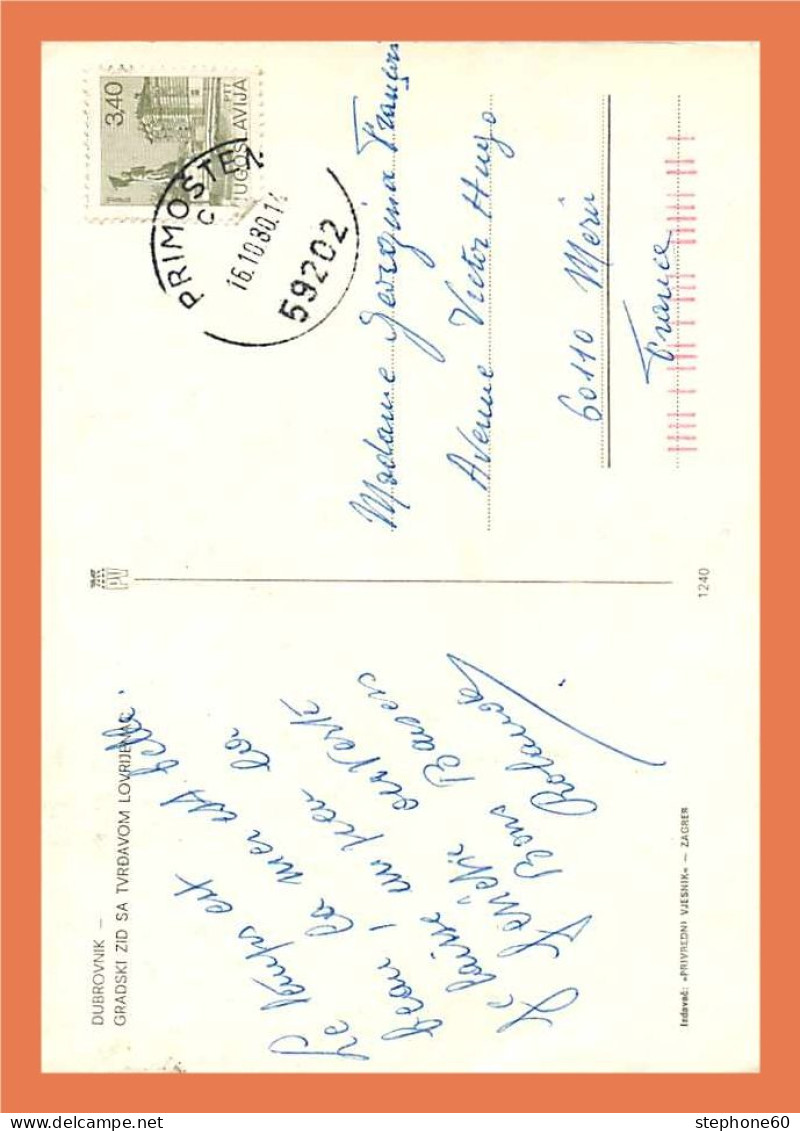 DUBROVNIK —
GRADSKI ZID SA TVRĐAVOM LOVRIJENAC
Le temps est
beau, la mer est belle.
Je laisse un peu
Bons Baisers
Rolande
Izdavač: »PRIVREDNI VJESNIK« — ZAGREB
1240
3,40
PTT
JUGOSLAVIJA
PRIMOŠTEN
C
16.10.80.1
59202
Madame Georgina
Avenue Victor Hugo
60110 Meru
France
stephone60